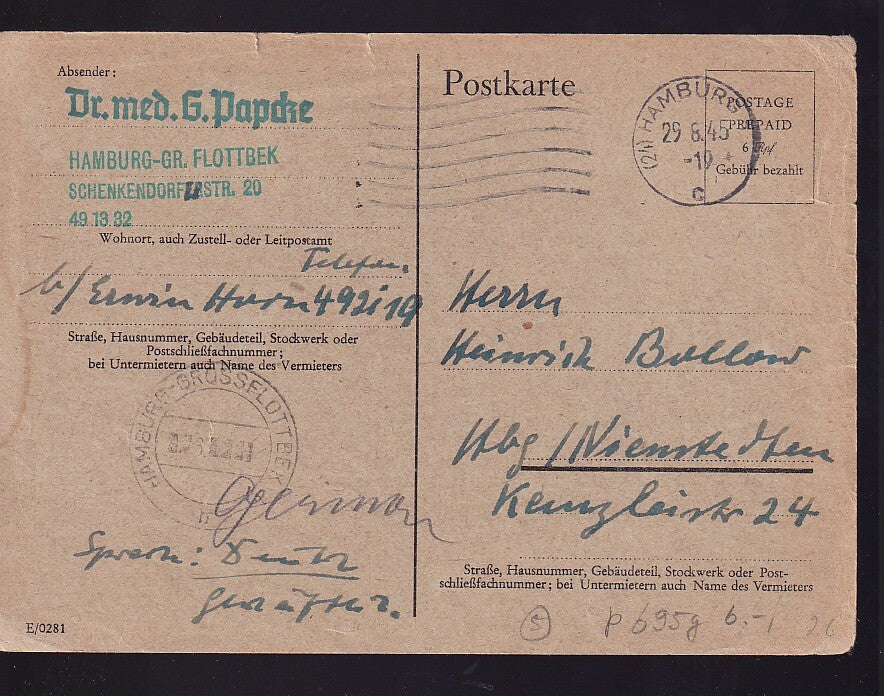 Absender:
Dr. med. G. Papcke
HAMBURG-GR. FLOTTBEK
SCHENKENDORFFSTR. 20
49 13 32
Wohnort, auch Zustell- oder Leitpostamt
Telefon.
b/ Erwin Horn 492119
Straße, Hausnummer, Gebäudeteil, Stockwerk oder
Postschließfachnummer;
bei Untermietern auch Name des Vermieters
HAMBURG-GROSSFLOTTBEK
German
Sprache: Deutsch
E/0281
Postkarte
(24) HAMBURG
29 8.45
-10
c
POSTAGE
PREPAID
6 Rpf
Gebühr bezahlt
Herrn
Heinrich Bollow
Hbg/Nienstedten
Kanzleistr 24
Straße, Hausnummer, Gebäudeteil, Stockwerk oder Post-
schließfachnummer; bei Untermietern auch Name des Vermieters
5 P 695g 6.- 26